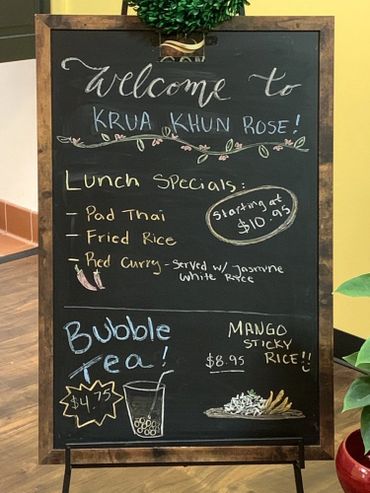 Welcome to
KRUA KHUN ROSE!
Lunch Specials:
- Pad Thai
- Fried Rice
- Red Curry - Served w/ Jasmine
White Rice
Starting at
$10.95
Bubble
Tea!
$4.75
MANGO
STICKY
RICE!!
$8.95